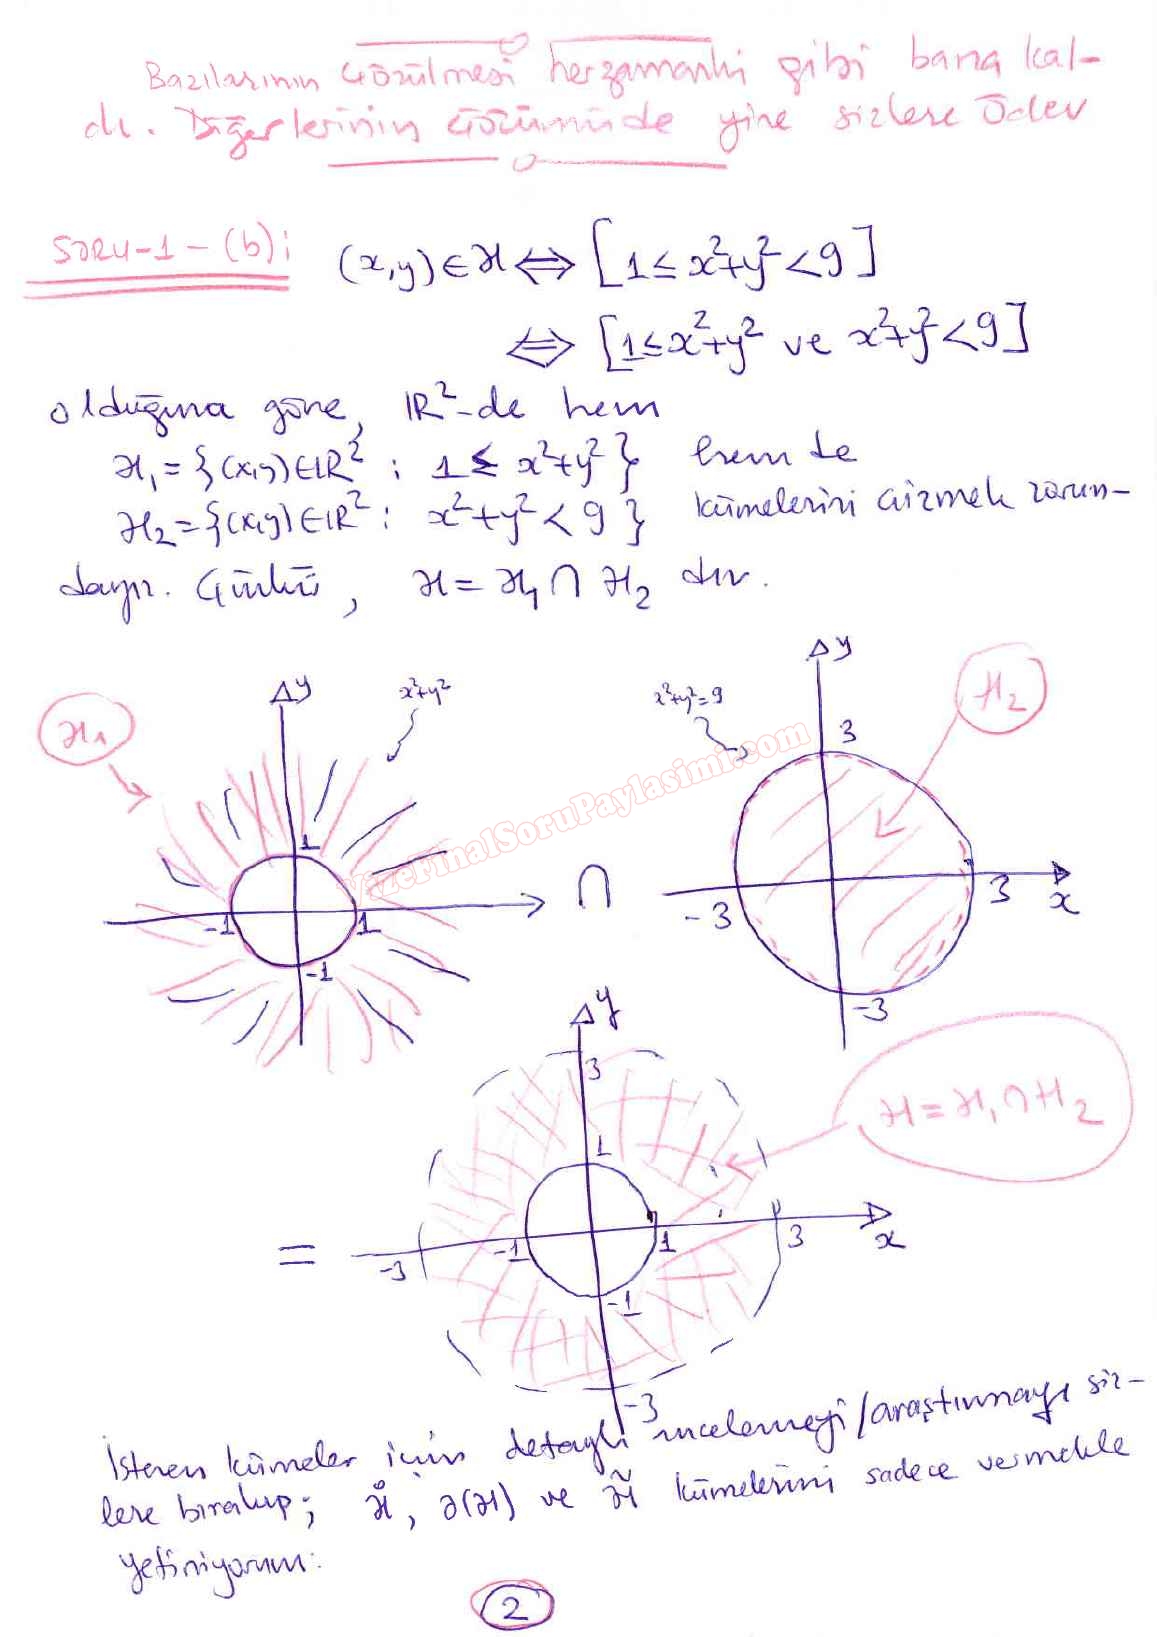 Bazılarının çözülmesi herzamanki gibi bana kal-
dı. Diğerlerinin çözümüde yine sizlere ödev
SORU-1-(b):
(x,y)∈H ⇔ [1≤x²+y²<9]
⇔ [1≤x²+y² ve x²+y²<9]
olduğuna göre, IR²-de hem
H₁={(x,y)∈IR² : 1≤x²+y²} hem de
H₂={(x,y)∈IR² : x²+y²<9} kümelerini çizmek zorun-
dayız. Çünkü, H=H₁∩H₂ dır.
H₁
y
x²+y²
1
-1
1
-1
∩
x²+y²=9
y
H₂
3
-3
3
x
-3
=
y
3
1
H=H₁∩H₂
-3
-1
1
3
x
-1
-3
VizeFinalSoruPaylasimi.com
İstenen kümeler için detaylı incelemeyi/araştırmayı siz-
lere bırakıp; H̊, ∂(H) ve H̃ kümelerini sadece vermekle
yetiniyorum:
2